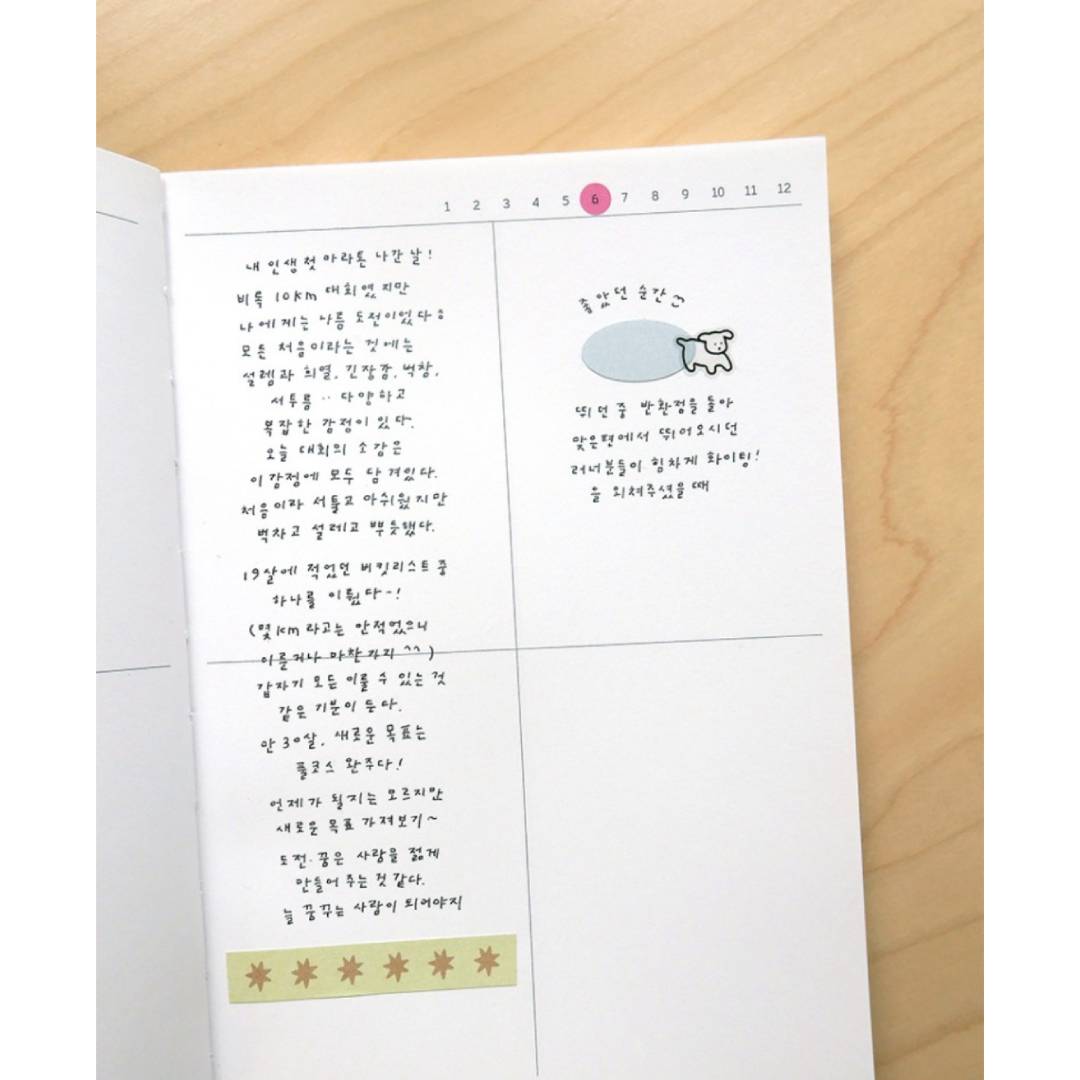 1 2 3 4 5 6 7 8 9 10 11 12
내 인생 첫 마라톤 나간 날!
비록 10km 대회였지만
나에게는 나름 도전이었다
모든 처음이라는 것에는
설렘과 희열, 긴장감, 벅참,
서투름 ·· 다양하고
복잡한 감정이 있다.
오늘 대회의 소감은
이 감정에 모두 담겨있다.
처음이라 서툴고 아쉬웠지만
벅차고 설레고 뿌듯했다.
19살에 적었던 버킷리스트 중
하나를 이뤘다~!
(몇km 라고는 안적었으니
이룬거나 마찬가지 ^^)
갑자기 모든 이룰 수 있는 것
같은 기분이 든다.
만 30살, 새로운 목표는
풀코스 완주다!
언제가 될지는 모르지만
새로운 목표 가져보기~
도전·꿈은 사람을 젊게
만들어 주는 것 같다.
늘 꿈꾸는 사람이 되어야지
좋았던 순간
뛰던 중 반환점을 돌아
맞은편에서 뛰어오시던
러너분들이 힘차게 화이팅!
을 외쳐주셨을 때